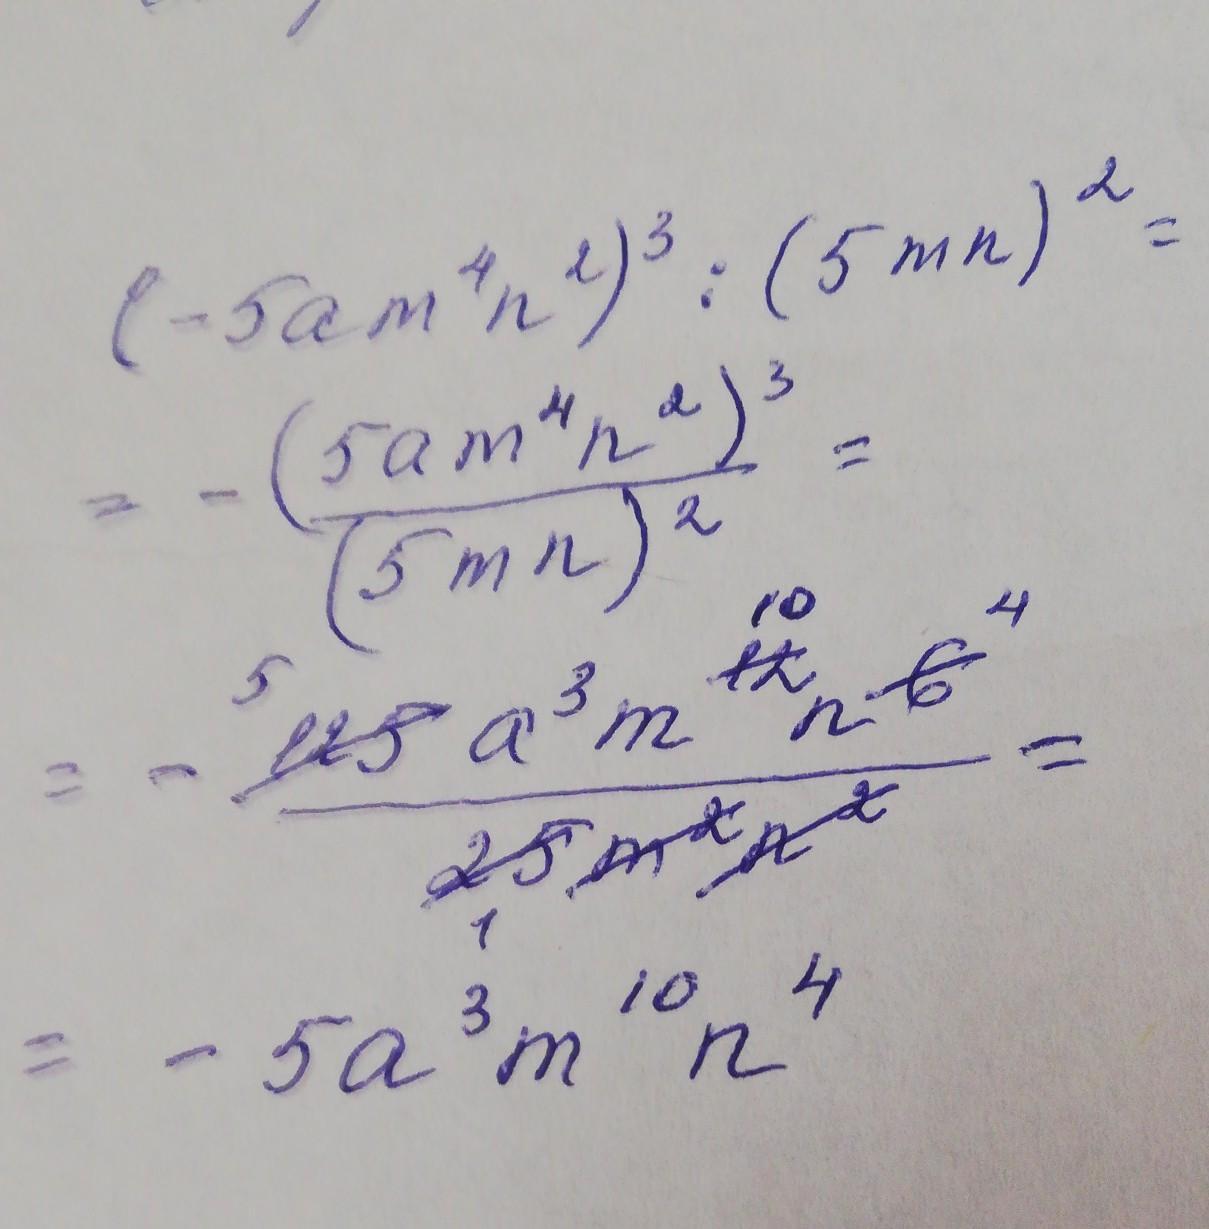 (-5am⁴n²)³ : (5mn)² =
= - (5am⁴n²)³ =
(5mn)²
5 10 4
= - 125 a³m¹²n⁶ =
25m²n²
1
= - 5a³m¹⁰n⁴